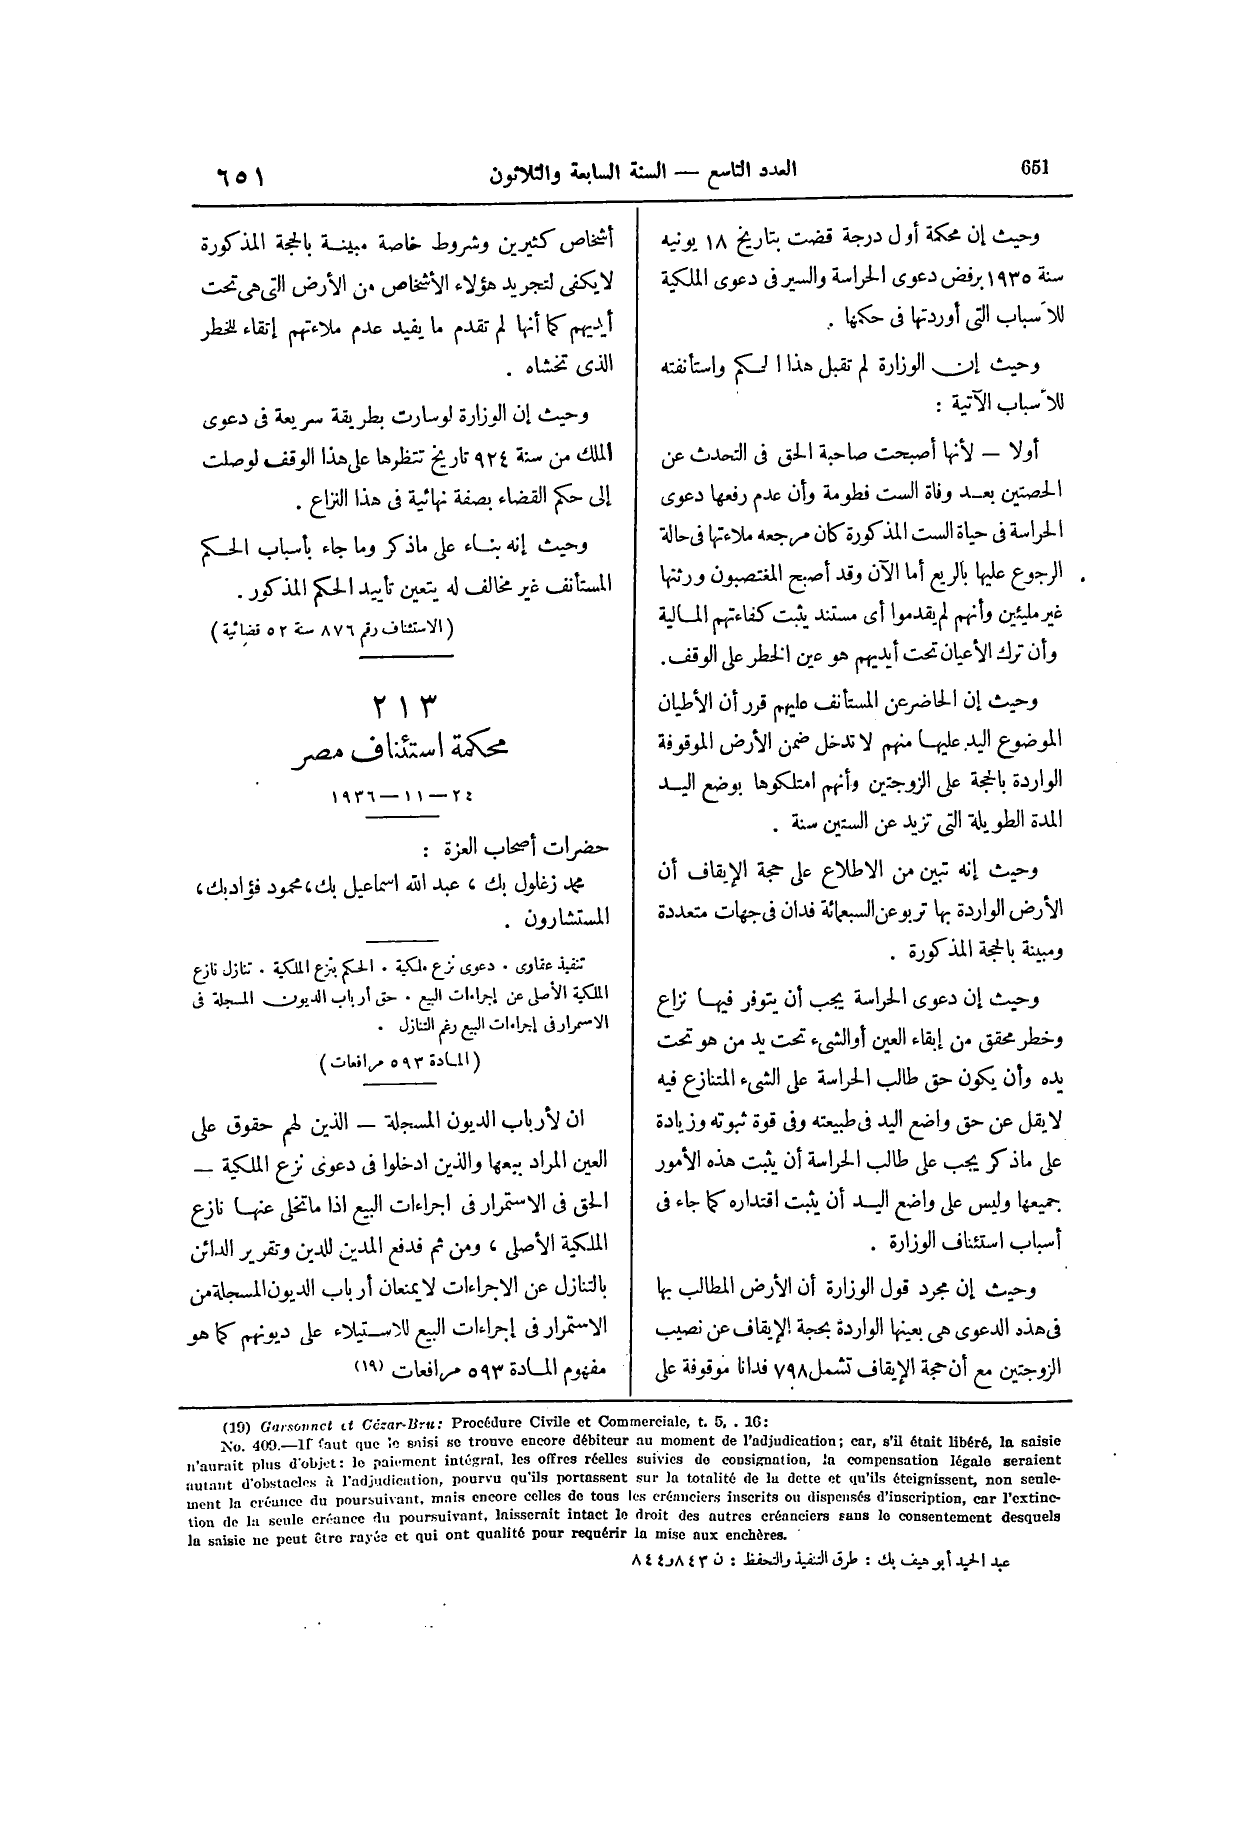 651
العدد التاسع — السنة السابعة والثلاثون
٦٥١
وحيث إن محكمة أول درجة قضت بتاريخ ١٨ يونيه
سنة ١٩٣٥ برفض دعوى الحراسة والسير فى دعوى الملكية
للأسباب التى أوردتها فى حكمها .
وحيث إن الوزارة لم تقبل هذا الحكم واستأنفته
للأسباب الآتية :
أولا — لأنها أصبحت صاحبة الحق فى التحدث عن
الحصتين بعد وفاة الست فطومة وأن عدم رفعها دعوى
الحراسة فى حياة الست المذكورة كان مرجعه ملاءتها فى حالة
الرجوع عليها بالريع أما الآن وقد أصبح المغتصبون ورثتها
غير مليئين وأنهم لم يقدموا أى مستند يثبت كفاءتهم المالية
وأن ترك الأعيان تحت أيديهم هو عين الخطر على الوقف.
وحيث إن الحاضر عن المستأنف عليهم قرر أن الأطيان
الموضوع اليد عليها منهم لا تدخل ضمن الأرض الموقوفة
الواردة بالحجة على الزوجتين وأنهم امتلكوها بوضع اليد
المدة الطويلة التى تزيد عن الستين سنة .
وحيث إنه تبين من الاطلاع على حجة الإيقاف أن
الأرض الواردة بها تربو عن السبعمائة فدان فى جهات متعددة
ومبينة بالحجة المذكورة .
وحيث إن دعوى الحراسة يجب أن يتوفر فيها نزاع
وخطر محقق من إبقاء العين أوالشىء تحت يد من هو تحت
يده وأن يكون حق طالب الحراسة على الشىء المتنازع فيه
لايقل عن حق واضع اليد فى طبيعته وفى قوة ثبوته وزيادة
على ماذكر يجب على طالب الحراسة أن يثبت هذه الأمور
جميعها وليس على واضع اليد أن يثبت اقتداره كما جاء فى
أسباب استئناف الوزارة .
وحيث إن مجرد قول الوزارة أن الأرض المطالب بها
فى هذه الدعوى هى بعينها الواردة بحجة الإيقاف عن نصيب
الزوجتين مع أن حجة الإيقاف تشمل ٧٩٨ فدانا موقوفة على
أشخاص كثيرين وشروط خاصة مبينة بالحجة المذكورة
لايكفى لتجريد هؤلاء الأشخاص من الأرض التى هى تحت
أيديهم كما أنها لم تقدم ما يفيد عدم ملاءتهم إتقاء للخطر
الذى تخشاه .
وحيث إن الوزارة لوسارت بطريقة سريعة فى دعوى
الملك من سنة ٩٢٤ تاريخ تنظرها على هذا الوقف لوصلت
إلى حكم القضاء بصفة نهائية فى هذا النزاع .
وحيث إنه بناء على ماذكر وما جاء بأسباب الحكم
المستأنف غير مخالف له يتعين تأييد الحكم المذكور .
( الاستئناف رقم ٨٧٦ سنة ٥٢ قضائية )
٢١٣
محكمة استئناف مصر
٢٤ — ١١ — ١٩٣٦
حضرات أصحاب العزة :
محمد زغلول بك ، عبد الله اسماعيل بك ، محمود فؤاد بك ،
المستشارون .
تنفيذ عقاوى . دعوى نزع ملكية . الحكم بنزع الملكية . تنازل نازع
الملكية الأصلى عن إجراءات البيع . حق أرباب الديون المسجلة فى
الاسمرار فى إجراءات البيع رغم التنازل .
( المادة ٥٩٣ مرافعات )
ان لأرباب الديون المسجلة — الذين لهم حقوق على
العين المراد بيعها والذين ادخلوا فى دعوى نزع الملكية —
الحق فى الاستمرار فى اجراءات البيع اذا ماتخلى عنها نازع
الملكية الأصلى ، ومن ثم فدفع المدين للدين وتقرير الدائن
بالتنازل عن الاجراءات لايمنعان أرباب الديون المسجلة من
الاستمرار فى إجراءات البيع للاستيلاء على ديونهم كما هو
مفهوم المادة ٥٩٣ مرافعات (١٩)
(19) Garsonnet et Cézar-Bru: Procédure Civile et Commerciale, t. 5, . 16:
No. 409.—Il faut que le saisi se trouve encore débiteur au moment de l'adjudication; car, s'il était libéré, la saisie
n'aurait plus d'objet: le paiement intégral, les offres réelles suivies de consignation, la compensation légale seraient
autant d'obstacles à l'adjudication, pourvu qu'ils portassent sur la totalité de la dette et qu'ils éteignissent, non seule-
ment la créance du poursuivant, mais encore celles de tous les créanciers inscrits ou dispensés d'inscription, car l'extinc-
tion de la seule créance du poursuivant, laisserait intact le droit des autres créanciers sans le consentement desquels
la saisie ne peut être rayée et qui ont qualité pour requérir la mise aux enchères.
عبد الحميد أبو هيف بك : طرق التنفيذ والتحفظ : ن ٨٤٣ و ٨٤٤